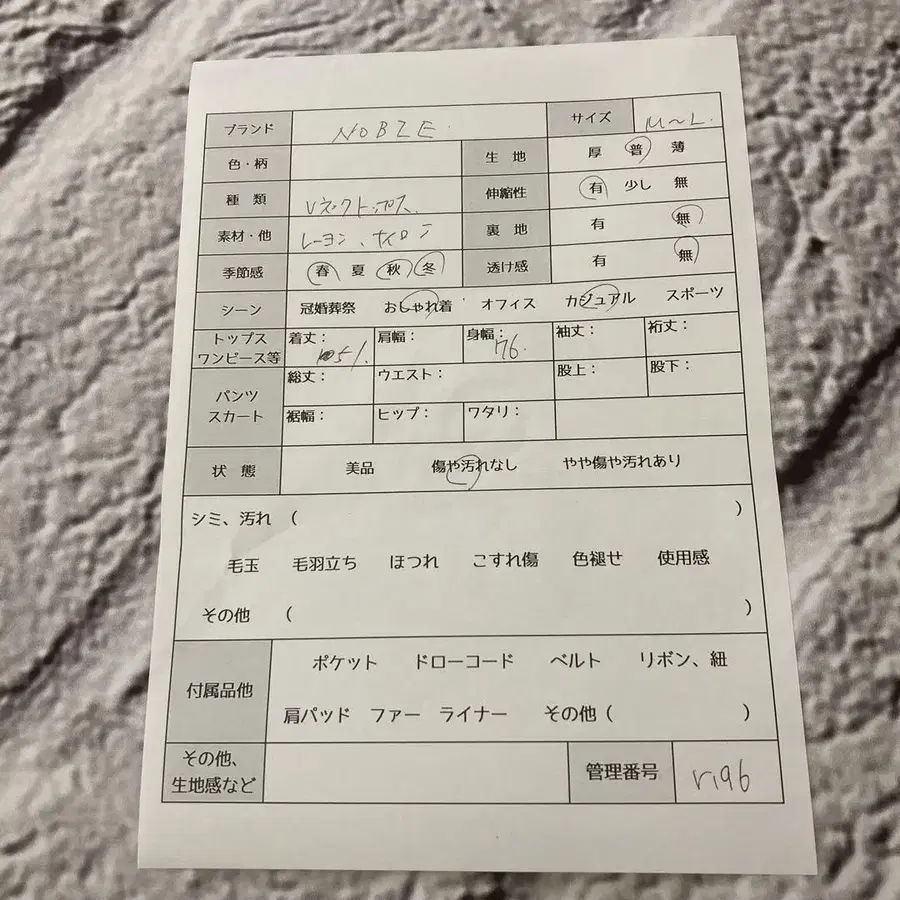 ブランド NOBZE. サイズ M〜L.
色・柄 生地 厚 普 薄
種類 Vネックトップス. 伸縮性 有 少し 無
素材・他 レーヨン、ナイロン 裏地 有 無
季節感 春 夏 秋 冬 透け感 有 無
シーン 冠婚葬祭 おしゃれ着 オフィス カジュアル スポーツ
トップス ワンピース等 着丈: 51. 肩幅: 身幅: 76. 袖丈: 裄丈:
パンツ スカート 総丈: ウエスト: 股上: 股下:
裾幅: ヒップ: ワタリ:
状態 美品 傷や汚れなし やや傷や汚れあり
シミ、汚れ ( )
毛玉 毛羽立ち ほつれ こすれ傷 色褪せ 使用感
その他 ( )
付属品他 ポケット ドローコード ベルト リボン、紐
肩パッド ファー ライナー その他 ( )
その他、
生地感など 管理番号 ri96